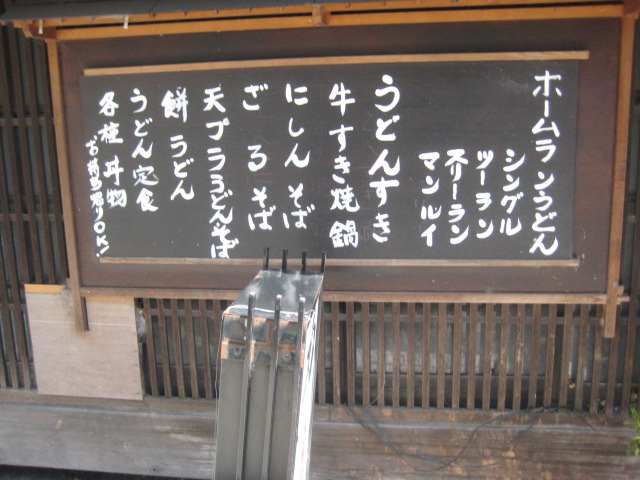 ホームランうどん
シングル
ツーラン
スリーラン
マンルイ
うどんすき
牛すき焼鍋
にしんそば
ざるそば
天プラうどん・そば
餅うどん
うどん定食
各種丼物
お弁当造りOK!